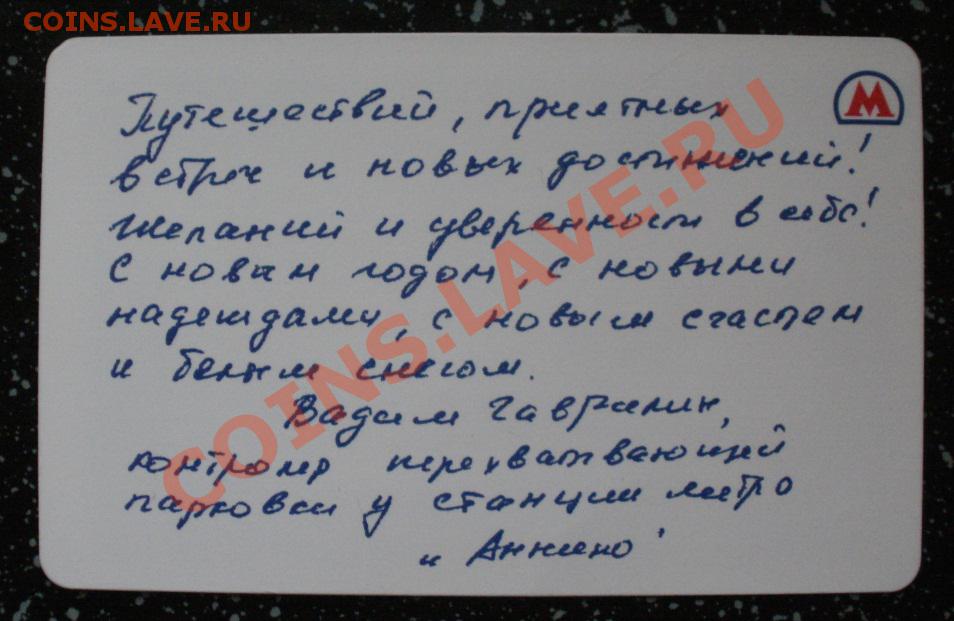 COINS.LAVE.RU
М
Путешествий, приятных
встреч и новых достижений!
Желаний и уверенности в себе!
С новым годом, с новыми
надеждами, с новым счастьем
и белым снегом.
Вадим Гаврилин,
контролер перехватывающей
парковки у станции метро
"Аннино"
COINS.LAVE.RU